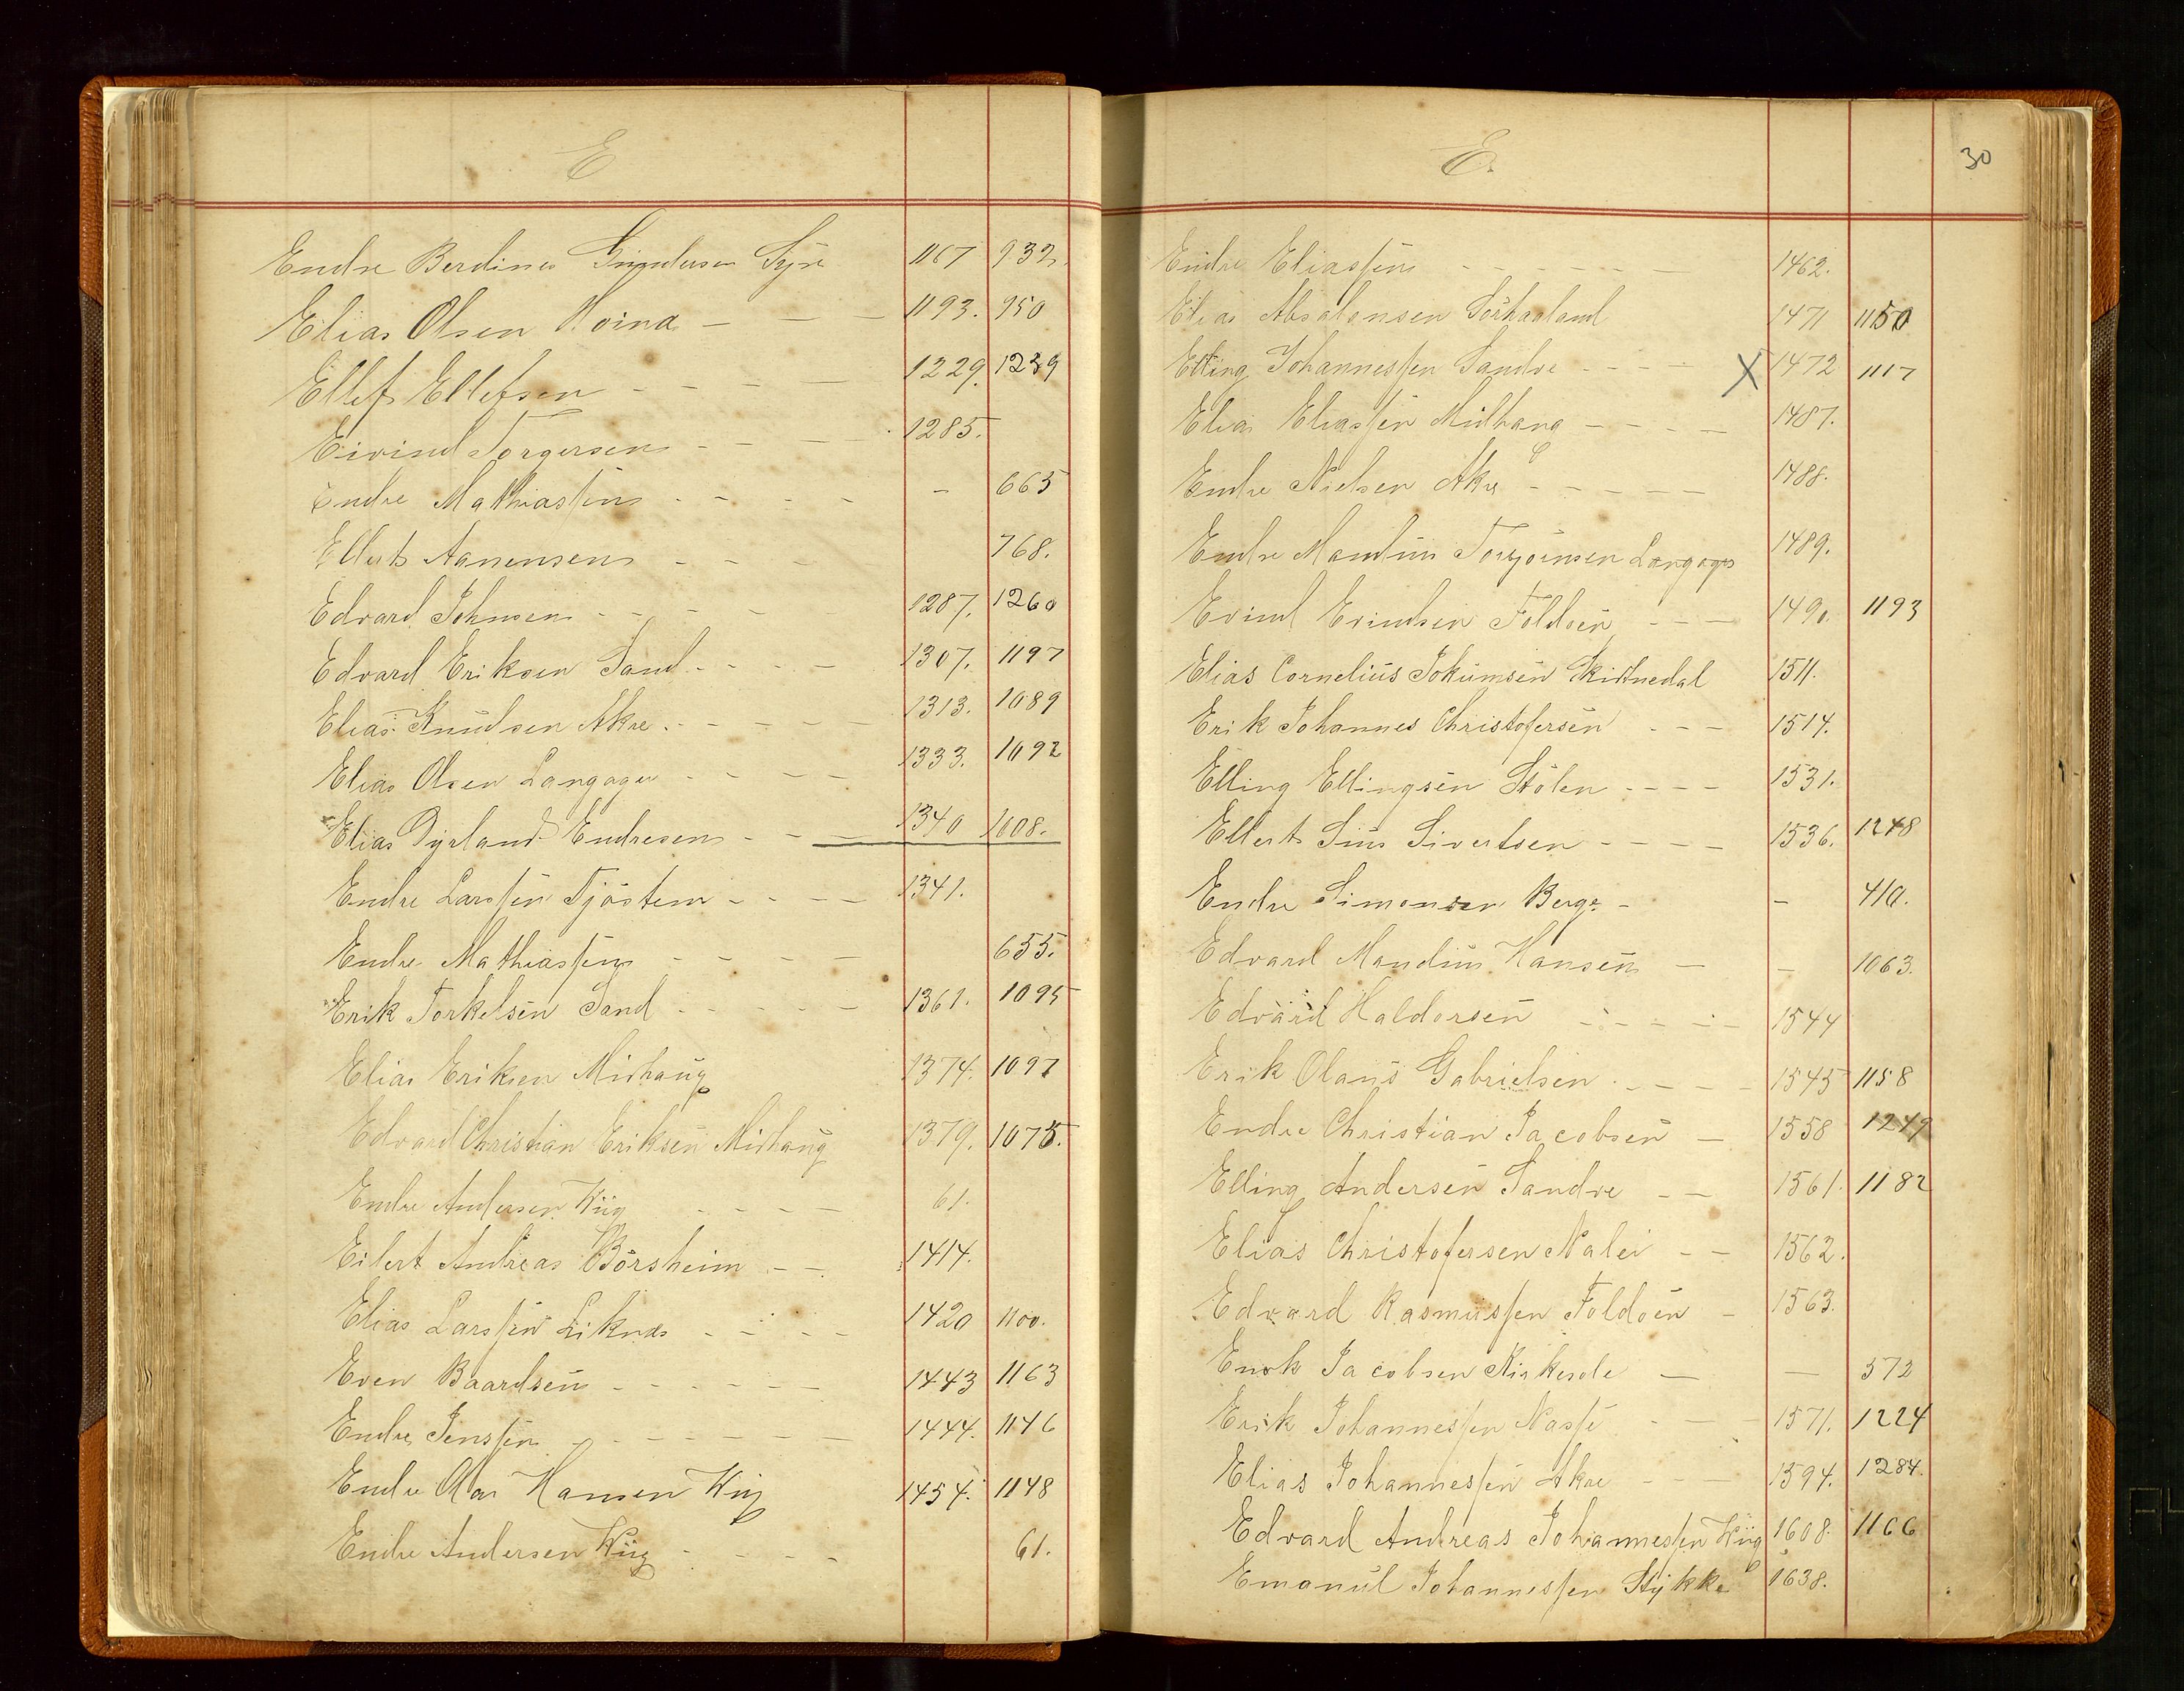 E
Endre Berdines Gundersen Syre 1167 932.
Elias Olsen Hoina - - - 1193. 950
Ellef Ellefsen - - - - 1229. 1239
Eivind Torgersen - - - 1285.
Endre Mathiasſen - - - - - 665
Ellert Aanensen - - - 768.
Edvard Johnsen - - - - - 1287. 1260
Edvard Eriksen Sand - - - - 1307. 1197
Elias Knudsen Akre. - - - - - 1313. 1089
Elias Olsen Langager - - - - 1333. 1092
Elias Dyrland Endresen - - - 1340 1008.
Endre Larsſen Tjöstem - - - - 1341.
Endre Mathiasſen - - - - 655.
Erik Torkelsen Sand - - - - - 1361. 1095
Elias Eriksen Midhaug 1374. 1097
Edvard Christian Eriksen Midhaug 1379. 1075.
Endre Andersen Wiig - - - - 61.
Eilert Andreas Börsheim - - 1414.
Elias Larsſen Liknes - - - - 1420 1100.
Even Baardsen - - - - - - 1443 1163
Endre Jensſen - - - - - - - 1444. 1146
Endre Hansen Wiig 1454. 1148
Endre Andersen Wiig - - - - 61.
E. 30
Endre Eliasſen - - - - - - 1462.
Elias Absalonsen Sörhaaland 1471 1150
Elling Johannesſen Sandve - - - - X 1472 1117
Elias Eliasſen Midhaug - - - - 1487.
Endre Nielsen Akre - - - - - 1488.
Endre Mandius Torbjörnsen Langager 1489.
Evind Evindsen Foldöen - - - 1490. 1193
Elias Cornelius Jokumsen Skidnedal 1511.
Erik Johannes Christofersen - - - 1514.
Elling Ellingsen Stölen - - - - 1531.
Ellert Sivertsen - - - - 1536. 1248
Endre Simonsen Berge - - 410.
Edvard Mandius Hansen - - 1063.
Edvard Haldorsen - - - - - 1544
Erik Olaus Gabrielsen - - - - 1545 1158
Endre Christian Jacobsen - 1558 1249
Elling Andersen Sandve - - 1561. 1182
Elias Christofersen Nalei - - 1562.
Edvard Rasmusſen Foldöen - 1563.
Enok Jacobsen - - 572
Erik Johannesſen - - - 1571. 1224
Elias Johannesſen Akre - - - 1594. 1284.
Edvard Andreas Johannesſen Wiig 1608. 1166
Emanuel Johannesſen Stykke 1638.